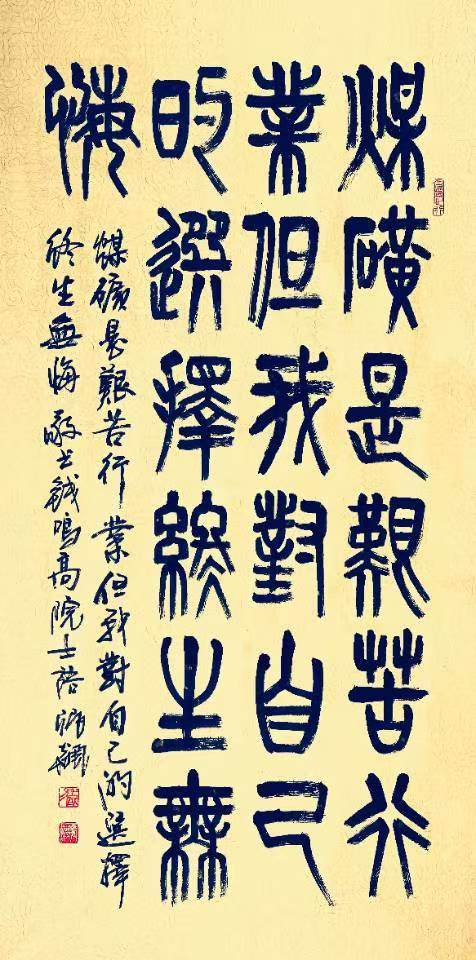 煤礦是艱苦行
業但我對自己
的選擇終生無
悔
煤礦是艱苦行業但我對自己的選擇
終生無悔敬书錢鳴高院士語